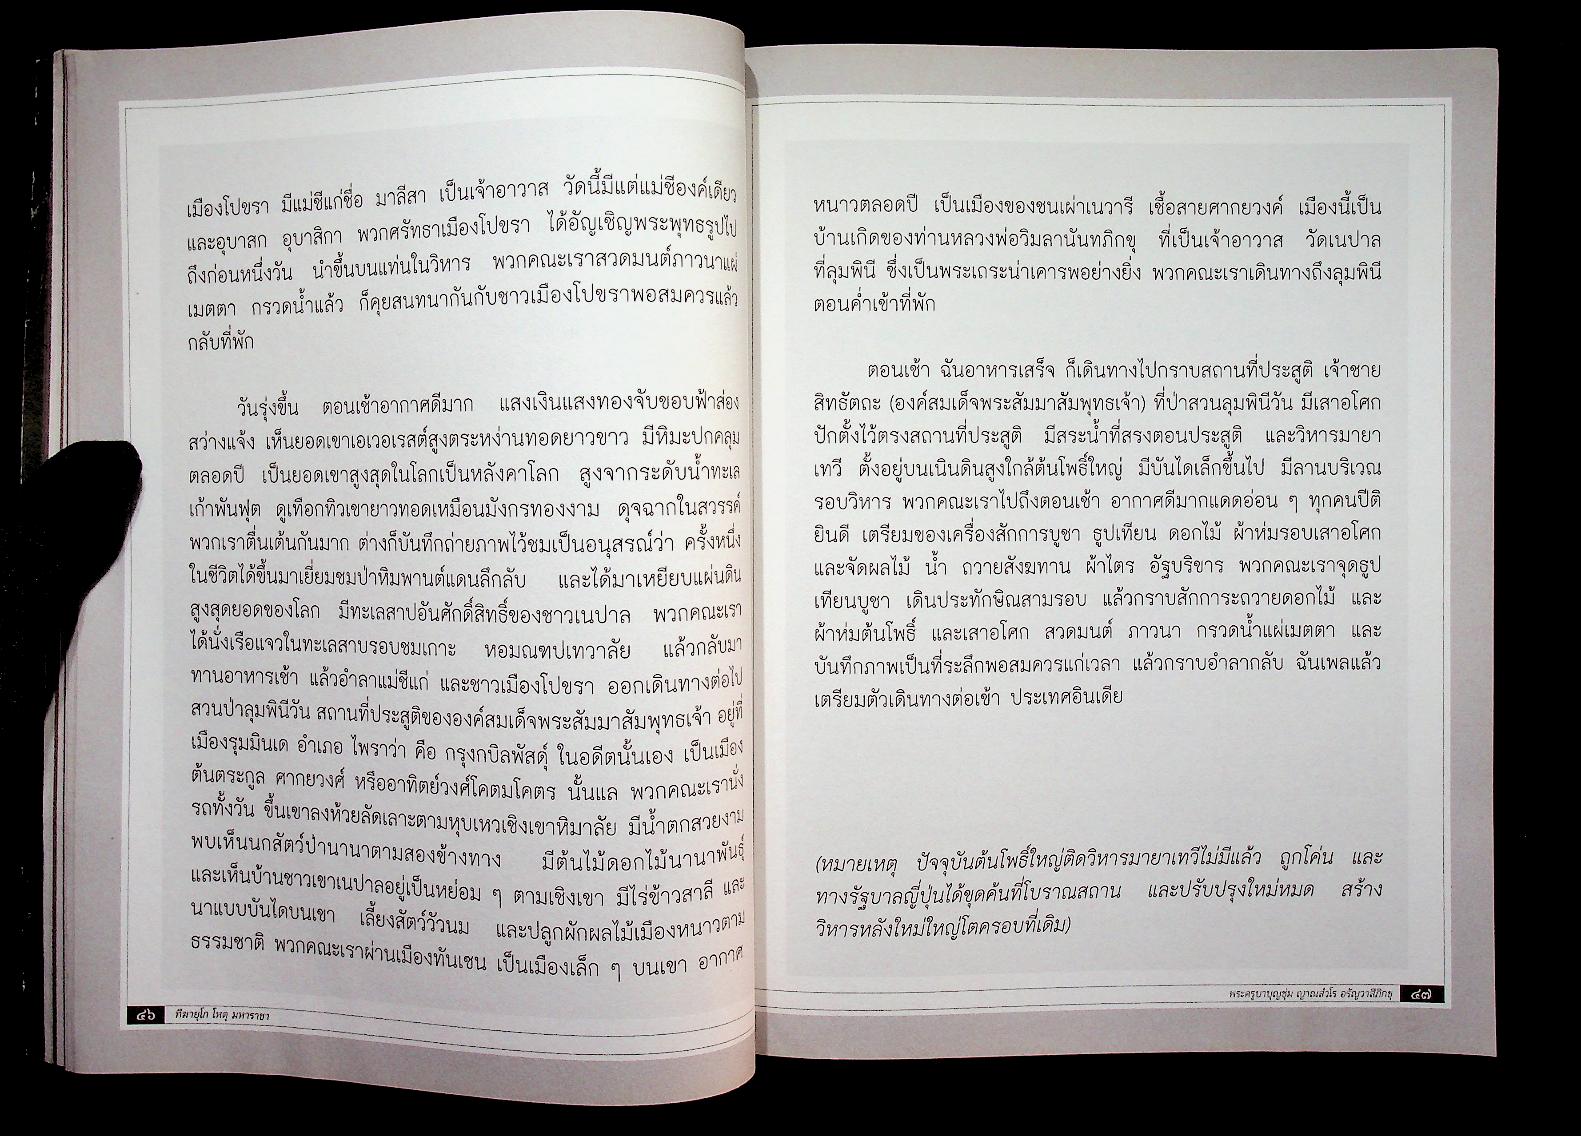 เมืองโปขรา มีแม่ชีแก่ชื่อ มาลีสา เป็นเจ้าอาวาส วัดนี้มีแต่แม่ชีองค์เดียว
และอุบาสก อุบาสิกา พวกศรัทธาเมืองโปขรา ได้อัญเชิญพระพุทธรูปไป
ถึงก่อนหนึ่งวัน นำขึ้นบนแท่นในวิหาร พวกคณะเราสวดมนต์ภาวนาแผ่
เมตตา กรวดน้ำแล้ว ก็คุยสนทนากันกับชาวเมืองโปขราพอสมควรแล้ว
กลับที่พัก
วันรุ่งขึ้น ตอนเช้าอากาศดีมาก แสงเงินแสงทองจับขอบฟ้าส่อง
สว่างแจ้ง เห็นยอดเขาเอเวอเรสต์สูงตระหง่านทอดยาวขาว มีหิมะปกคลุม
ตลอดปี เป็นยอดเขาสูงสุดในโลกเป็นหลังคาโลก สูงจากระดับน้ำทะเล
เก้าพันฟุต ดูเทือกทิวเขายาวทอดเหมือนมังกรทองงาม ดุจฉากในสวรรค์
พวกเราตื่นเต้นกันมาก ต่างก็บันทึกถ่ายภาพไว้ชมเป็นอนุสรณ์ว่า ครั้งหนึ่ง
ในชีวิตได้ขึ้นมาเยี่ยมชมป่าหิมพานต์แดนลึกลับ และได้มาเหยียบแผ่นดิน
สูงสุดยอดของโลก มีทะเลสาปอันศักดิ์สิทธิ์ของชาวเนปาล พวกคณะเรา
ได้นั่งเรือแจวในทะเลสาบรอบชมเกาะ หอมณฑปเทวาลัย แล้วกลับมา
ทานอาหารเช้า แล้วอำลาแม่ชีแก่ และชาวเมืองโปขรา ออกเดินทางต่อไป
สวนป่าลุมพินีวัน สถานที่ประสูติขององค์สมเด็จพระสัมมาสัมพุทธเจ้า อยู่ที่
เมืองรุมมินเด อำเภอ ไพราว่า คือ กรุงกบิลพัสดุ์ ในอดีตนั้นเอง เป็นเมือง
ต้นตระกูล ศากยวงศ์ หรืออาทิตย์วงศ์โคตมโคตร นั้นแล พวกคณะเรานั่ง
รถทั้งวัน ขึ้นเขาลงห้วยลัดเลาะตามหุบเหวเชิงเขาหิมาลัย มีน้ำตกสวยงาม
พบเห็นนกสัตว์ป่านานาตามสองข้างทาง มีต้นไม้ดอกไม้นานาพันธุ์
และเห็นบ้านชาวเขาเนปาลอยู่เป็นหย่อม ๆ ตามเชิงเขา มีไร่ข้าวสาลี และ
นาแบบบันไดบนเขา เลี้ยงสัตว์วัวนม และปลูกผักผลไม้เมืองหนาวตาม
ธรรมชาติ พวกคณะเราผ่านเมืองทันเซน เป็นเมืองเล็ก ๆ บนเขา อากาศ
๔๖ ทีฆายุโก โหตุ มหาราชา
หนาวตลอดปี เป็นเมืองของชนเผ่าเนวารี เชื้อสายศากยวงค์ เมืองนี้เป็น
บ้านเกิดของท่านหลวงพ่อวิมลานันทภิกขุ ที่เป็นเจ้าอาวาส วัดเนปาล
ที่ลุมพินี ซึ่งเป็นพระเถระน่าเคารพอย่างยิ่ง พวกคณะเราเดินทางถึงลุมพินี
ตอนค่ำเข้าที่พัก
ตอนเช้า ฉันอาหารเสร็จ ก็เดินทางไปกราบสถานที่ประสูติ เจ้าชาย
สิทธัตถะ (องค์สมเด็จพระสัมมาสัมพุทธเจ้า) ที่ป่าสวนลุมพินีวัน มีเสาอโศก
ปักตั้งไว้ตรงสถานที่ประสูติ มีสระน้ำที่สรงตอนประสูติ และวิหารมายา
เทวี ตั้งอยู่บนเนินดินสูงใกล้ต้นโพธิ์ใหญ่ มีบันไดเล็กขึ้นไป มีลานบริเวณ
รอบวิหาร พวกคณะเราไปถึงตอนเช้า อากาศดีมากแดดอ่อน ๆ ทุกคนปีติ
ยินดี เตรียมของเครื่องสักการะบูชา ธูปเทียน ดอกไม้ ผ้าห่มรอบเสาอโศก
และจัดผลไม้ น้ำ ถวายสังฆทาน ผ้าไตร อัฐบริขาร พวกคณะเราจุดธูป
เทียนบูชา เดินประทักษิณสามรอบ แล้วกราบสักการะถวายดอกไม้ และ
ผ้าห่มต้นโพธิ์ และเสาอโศก สวดมนต์ ภาวนา กรวดน้ำแผ่เมตตา และ
บันทึกภาพเป็นที่ระลึกพอสมควรแก่เวลา แล้วกราบอำลากลับ ฉันเพลแล้ว
เตรียมตัวเดินทางต่อเข้า ประเทศอินเดีย
(หมายเหตุ ปัจจุบันต้นโพธิ์ใหญ่ติดวิหารมายาเทวีไม่มีแล้ว ถูกโค่น และ
ทางรัฐบาลญี่ปุ่นได้ขุดค้นที่โบราณสถาน และปรับปรุงใหม่หมด สร้าง
วิหารหลังใหม่ใหญ่โตครอบที่เดิม)
พระครูบาบุญชุ่ม ญาณสํวโร อรัญวาสีภิกขุ ๔๗